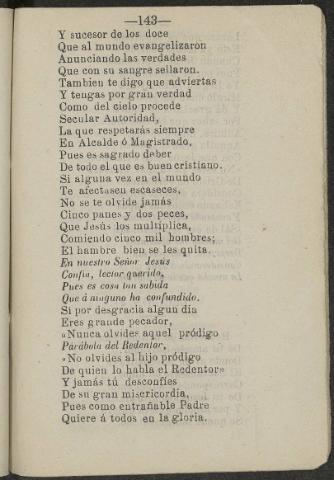 —143—
Y sucesor de los doce
Que al mundo evangelizaron
Anunciando las verdades
Que con su sangre sellaron.
Tambien te digo que adviertas
Y tengas por gran verdad
Como del cielo procede
Secular Autoridad,
La que respetarás siempre
En Alcalde ó Magistrado,
Pues es sagrado deber
De todo el que es buen cristiano.
Si alguna vez en el mundo
Te afectasen escaseces,
No se te olvide jamás
Cinco panes y dos peces,
Que Jesús los multiplica,
Comiendo cinco mil hombres;
El hambre bien se les quita.
En nuestro Señor Jesús
Confia, lector querido,
Pues es cosa tan sabida
Que á ninguno ha confundido.
Si por desgracia algun dia
Eres grande pecador,
«Nunca olvides aquel pródigo
Parábola del Redentor,
»No olvides al hijo pródigo
De quien lo habla el Redentor»
Y jamás tú desconfíes
De su gran misericordia,
Pues como entrañable Padre
Quiere á todos en la gloria.